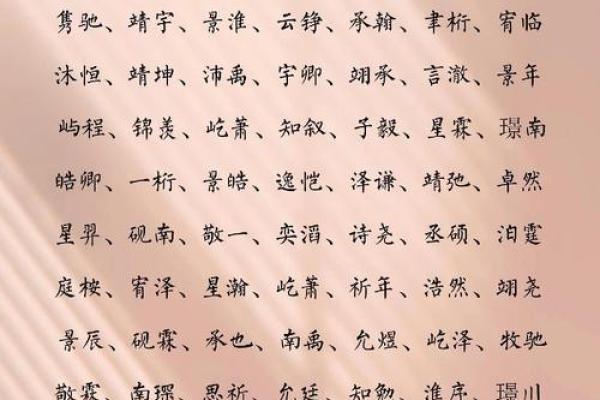 隽驰、靖宇、景淮、云铮、承翰、聿桁、宥临
沐恒、靖坤、沛禹、宇卿、翊承、言澈、景年
屿程、锦羡、屹萧、知叙、子毅、星霖、璟南
皓卿、一桁、景皓、逸恺、泽谦、靖弛、卓然
星羿、砚南、敬一、奕滔、诗尧、丞硕、洎霆
庭桉、宥泽、星瀚、屹萧、祈年、浩然、翊尧
景辰、砚霖、承也、南禹、允煜、屹泽、牧驰
敬霖、南琛、思祈、允廷、知勉、淮序、璟川